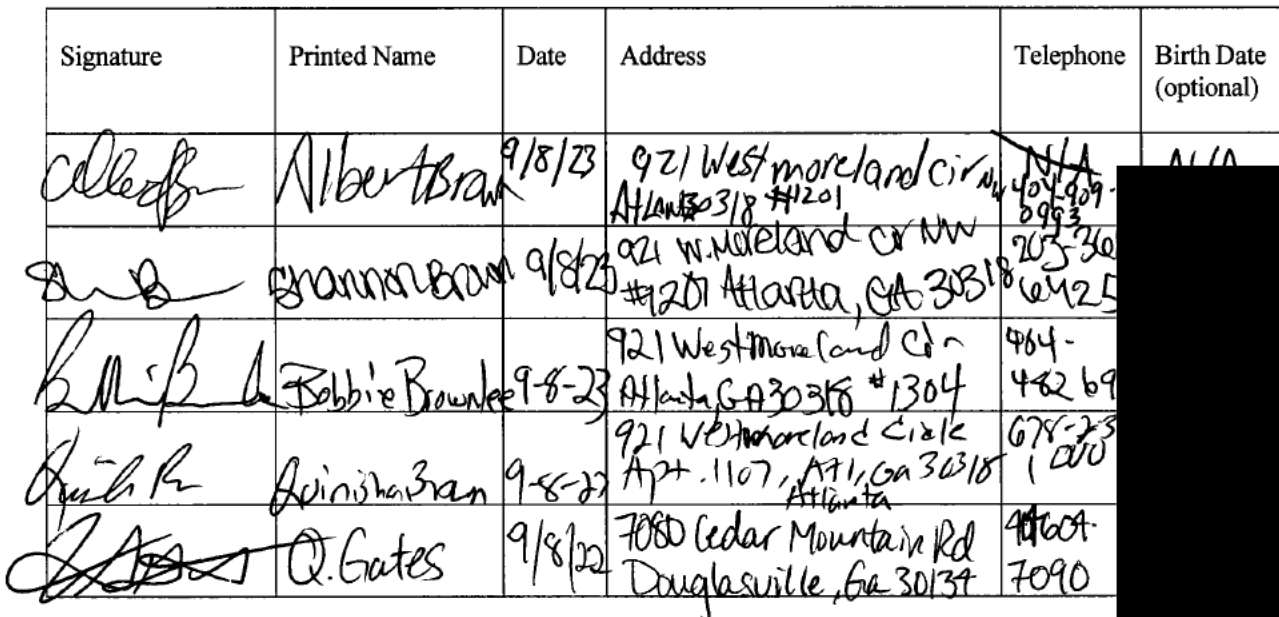 Signature Printed Name Date Address Telephone Birth Date
(optional)
Albert Brown 9/8/23 921 Westmoreland cir NW N/A N/A
#1201 404-909-
30318 0993
Shannon Brown 9/8/23 921 W.Moreland cir NW 203-36
#1201 Atlanta, GA 30318 6425
Bobbie Brownlee 9-8-23 921 Westmoreland Cir 404-
Atlanta, GA 30318 #1304 482 69
9-8-23 921 Westmoreland Circle 678-23
Apt. 1107, Atl, Ga 30318
Atlanta
Q. Gates 9/8/22 7080 Cedar Mountain Rd
Douglasville, Ga 30134 7090